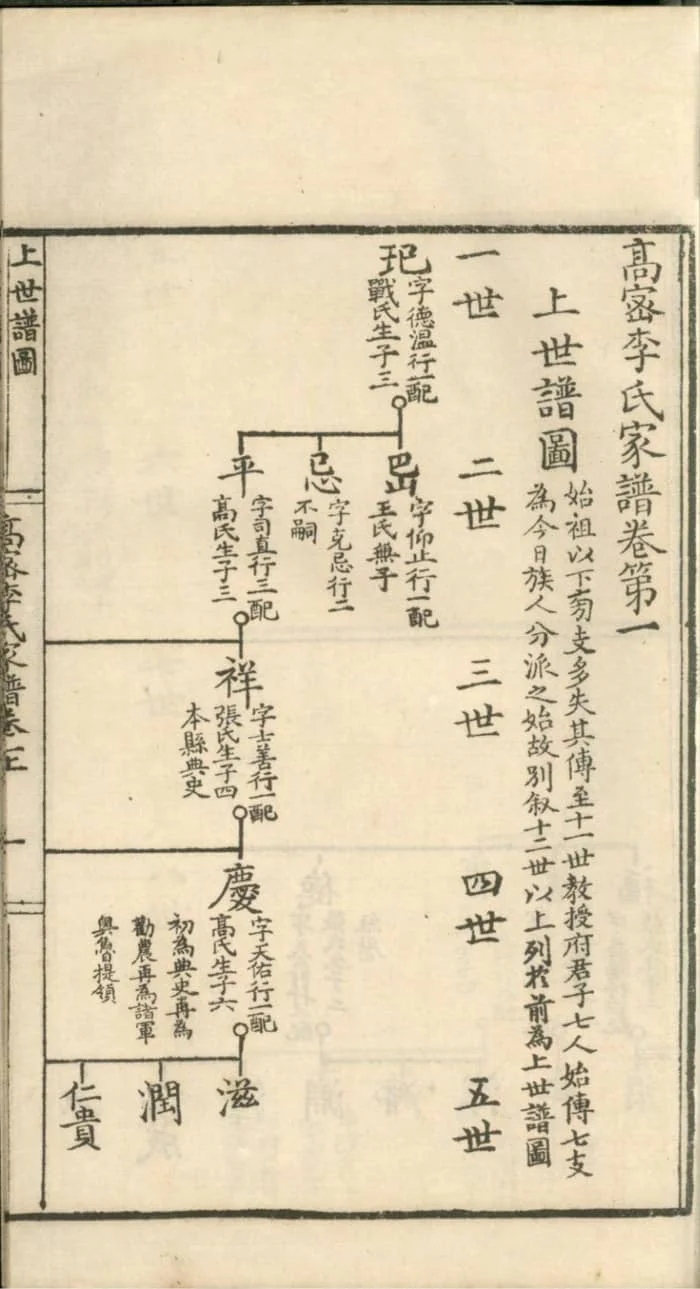 高宻李氏家譜卷第一
上世譜圖
始祖以下旁支多失其傳至十一世教授府君子七人始傳七支
為今日族人分派之始故別敘十二世以上列於前為上世譜圖
一世
二世
三世
四世
五世
玘
字德溫行一配
戰氏生子三
字仰止行一配
王氏無子
忌
字克忌行二
不嗣
平
字司直行三配
髙氏生子三
祥
字士善行一配
張氏生子四
本縣典史
慶
字天佑行一配
髙氏生子六
初為典史再為
勸農再為諸軍
奧魯提領
滋
潤
仁貴
上世譜圖
高宻李氏家譜卷上
一